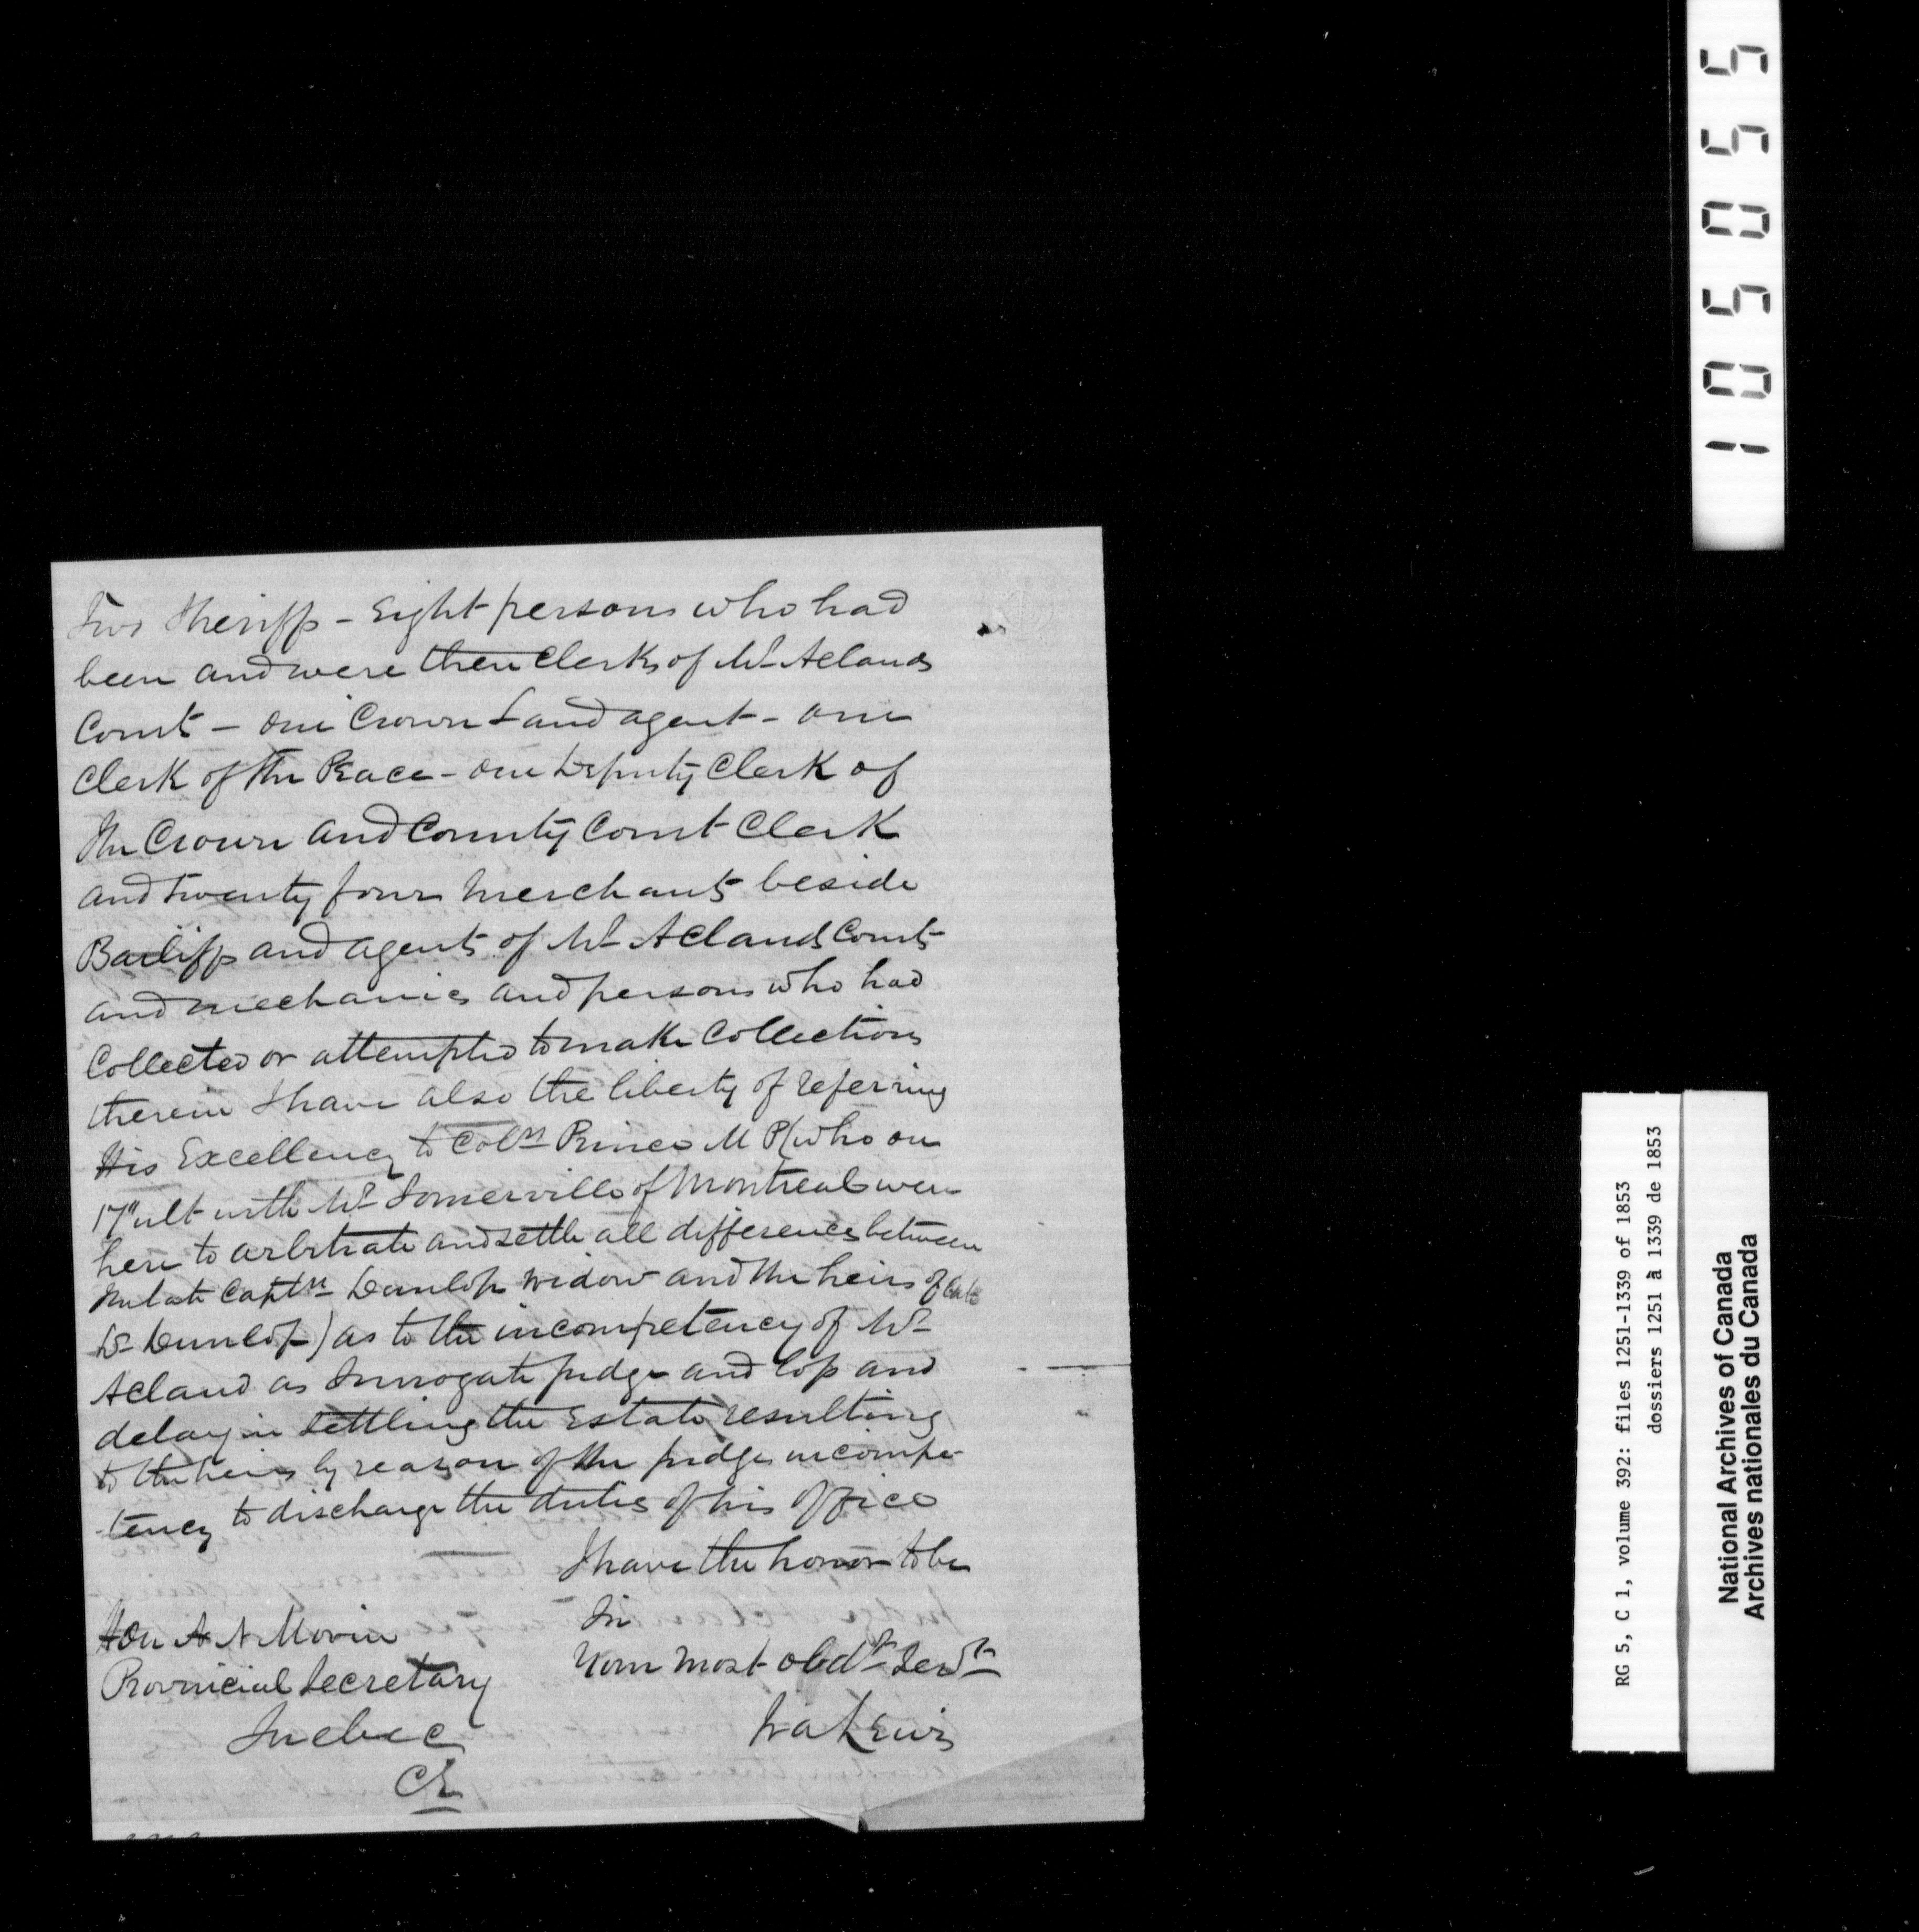 Two Sheriffs - Eight persons who had
been and were then Clerks of Mr Aclands
Court - one Crown Land agent - one
Clerk of the Peace - one Deputy Clerk of
the Crown and County Court Clerk
and twenty four merchants beside
Bailiffs and agents of Mr Aclands Court
and mechanics and persons who had
Collected or attempted to make Collections
therein I have also the liberty of referring
His Excellency to Coln Prince M P (who on
17" ult with Mr Somerville of Montreal were
here to arbitrate and settle all differences between
the late Captn Dunlops widow and the heirs of late
Dr Dunlop) as to the incompetency of Mr
Acland as Surrogate judge and loss and
delay in settling the Estate resulting
to the heirs by reason of the judges incompe-
-tency to discharge the duties of his office
I have the honor to be
Sir
Your most obdt Servt
Ira Lewis
Hon A N Morin
Provincial Secretary
Quebec
CE
105055
RG 5, C 1, volume 392: files 1251-1339 of 1853
dossiers 1251 à 1339 de 1853
National Archives of Canada
Archives nationales du Canada